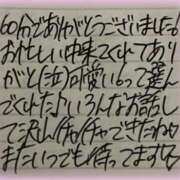 60分でありがとうございました!
お忙しい中来てくれてあり
がと(泣)可愛いって選ん
でくれた!いろんなお話し
て沢山イチャイチャできたね♡
またいつでも待ってます♡